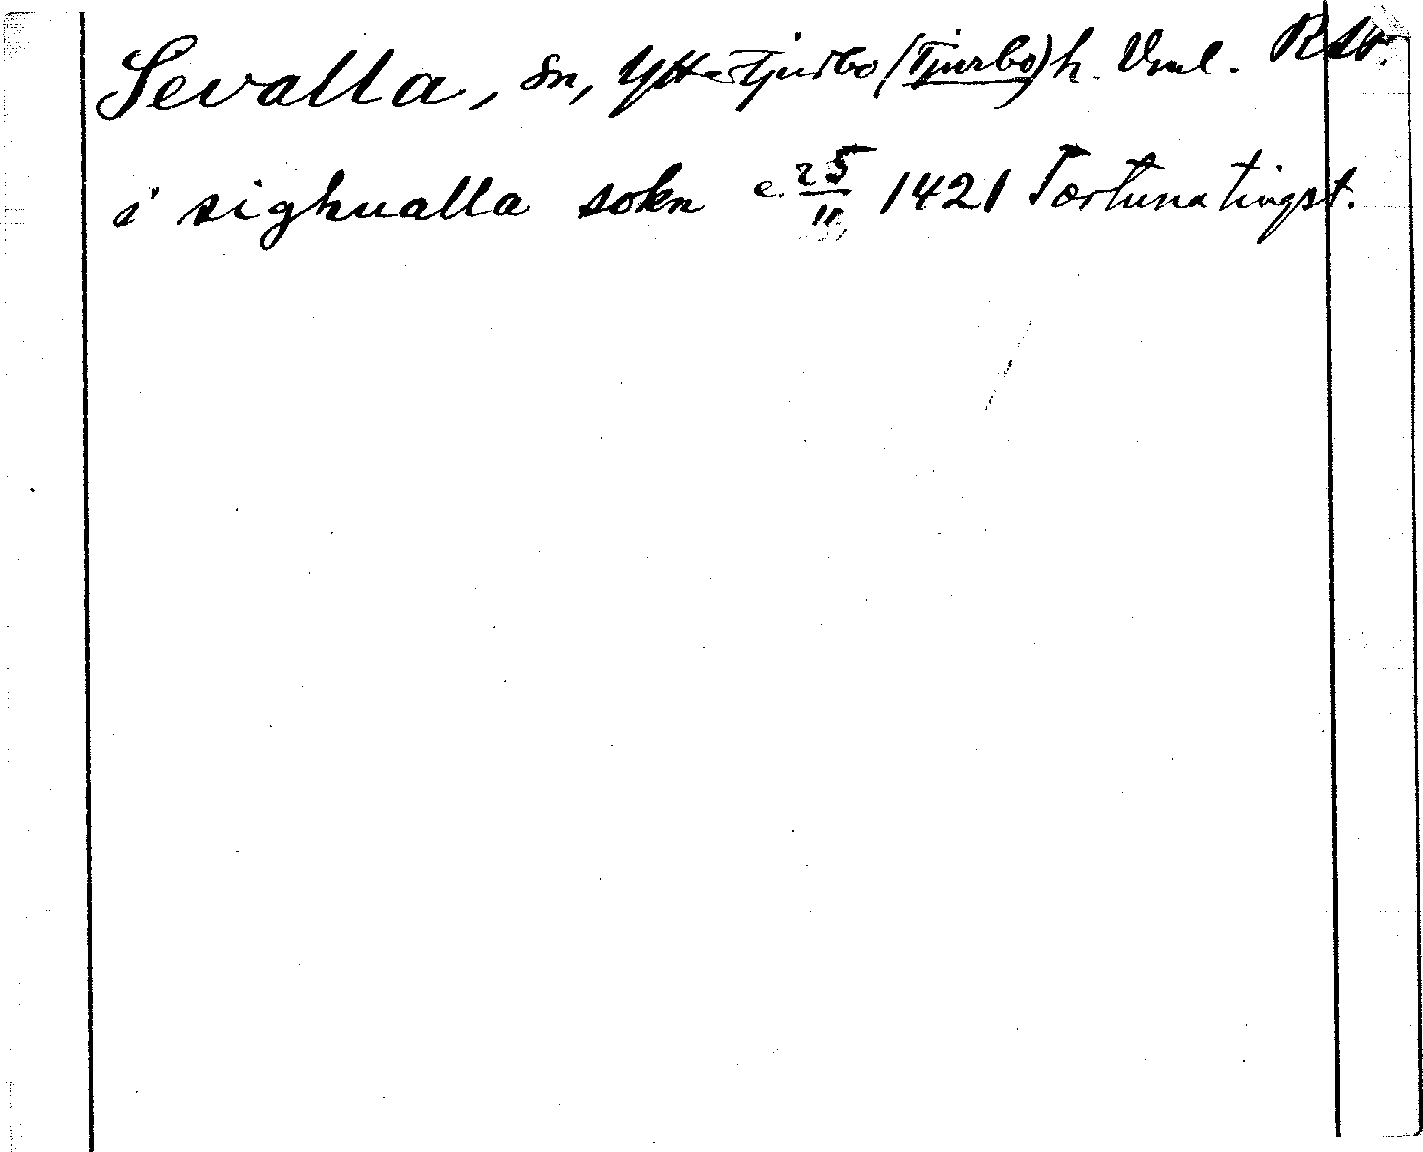 Sevalla, sn, Ytt-Tjurbo (Tjurbo) h. Vml. RAV.
i sighualla sokn e. 25/11 1421 Tortuna tingst.